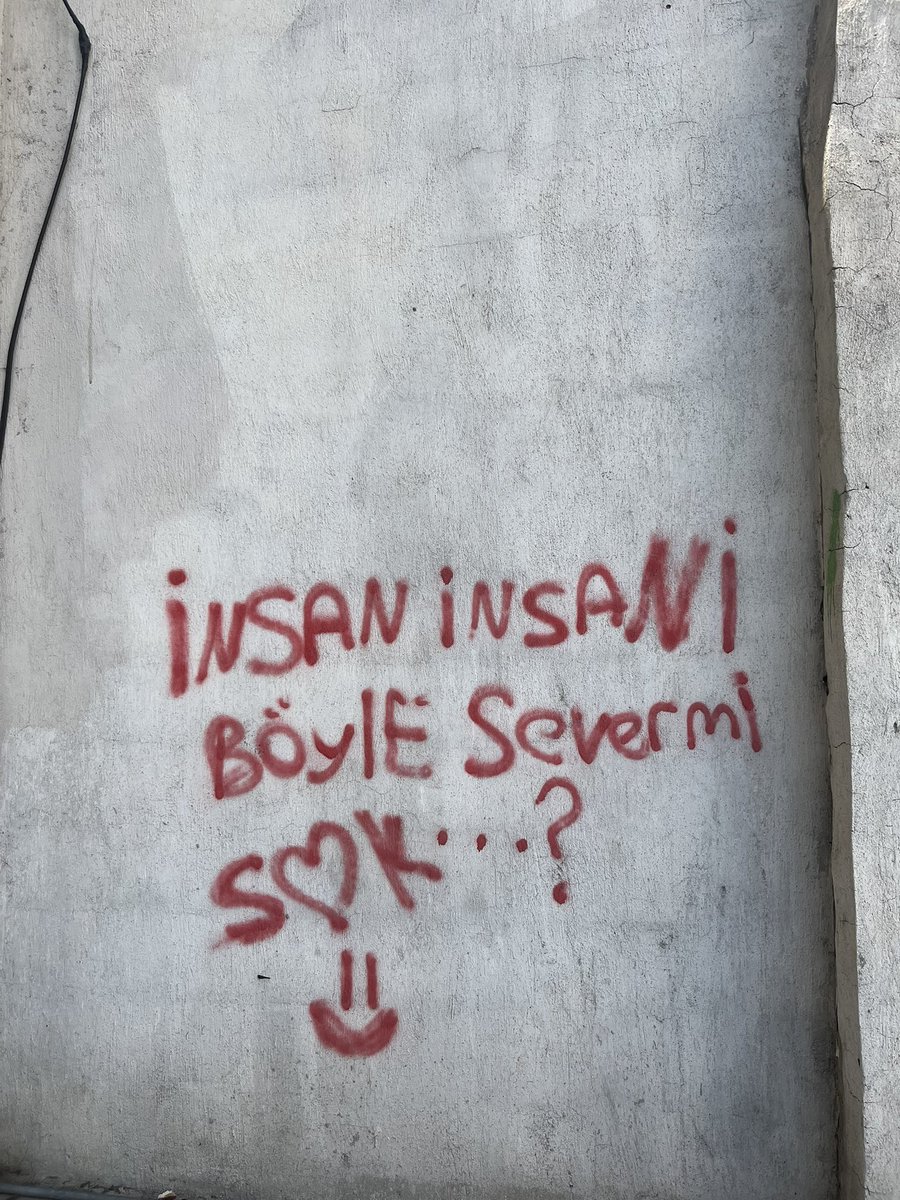 İNSAN İNSANİ
BÖYLE Severmi
S♡K...?